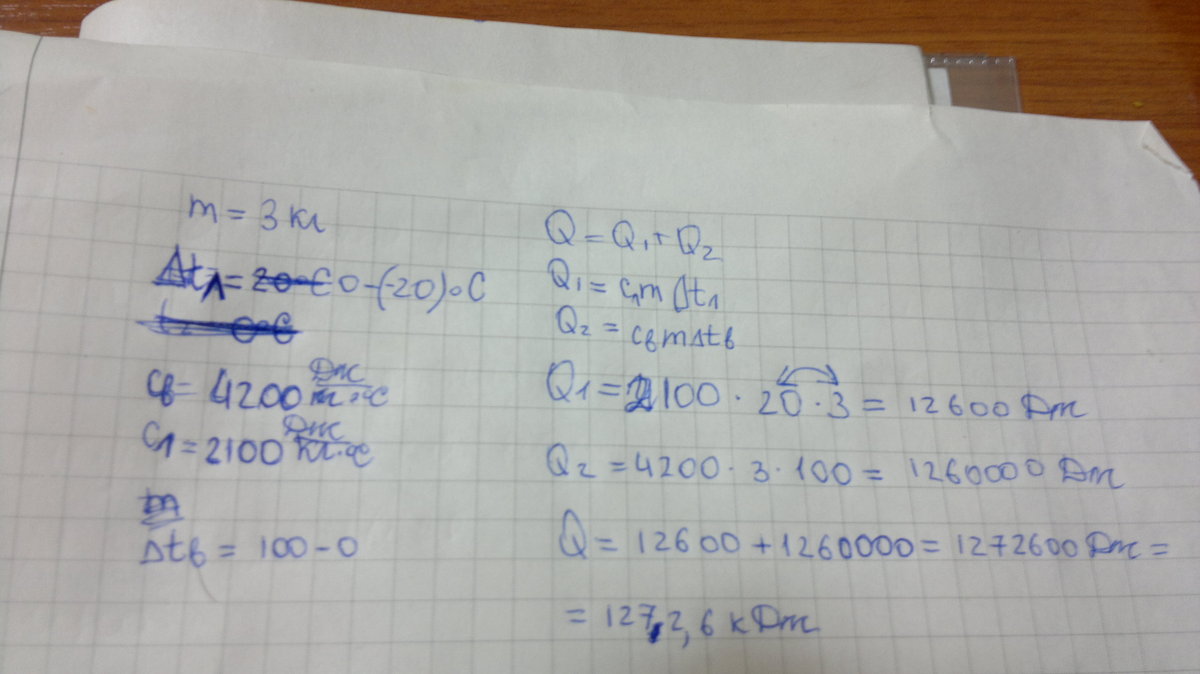 m = 3 кг
Δt₁ = 20°C 0-(-20)°C
t₂ = 0°C
cв = 4200 Дж/кг·°C
c₁ = 2100 Дж/кг·°C
m
Δtв = 100 - 0
Q = Q₁ + Q₂
Q₁ = c₁m Δt₁
Q₂ = cвmΔtв
Q₁ = 2100 · 20 · 3 = 12600 Дж
Q₂ = 4200 · 3 · 100 = 1260000 Дж
Q = 12600 + 1260000 = 1272600 Дж =
= 1272,6 кДж